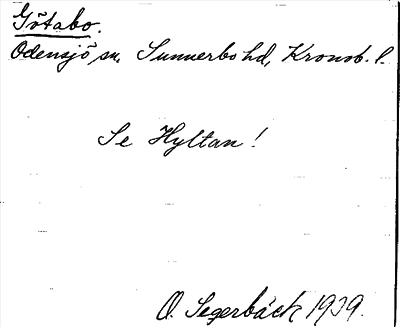 Götabo.
Odensjö sn, Sunnerbo hd, Kronob. l.
Se Hyltan!
O. Segerbäck 1939.